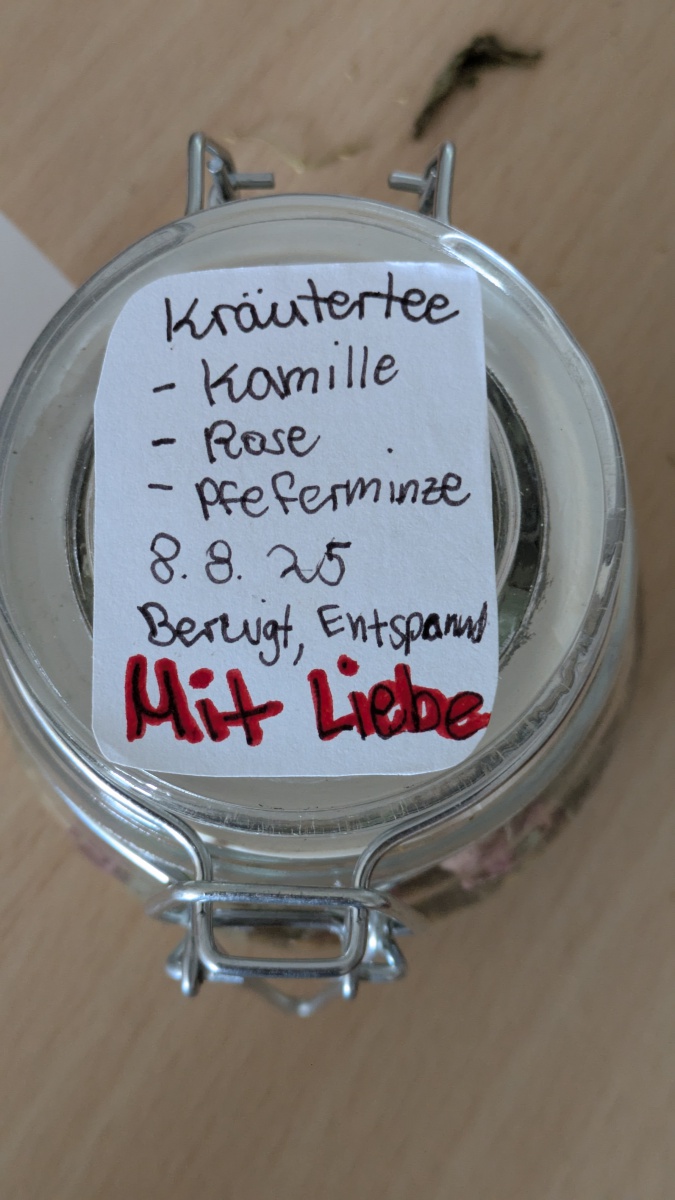 Kräutertee
- Kamille
- Rose
- Pfeferminze
8.8.25
Beruigt, Entspannd
Mit Liebe